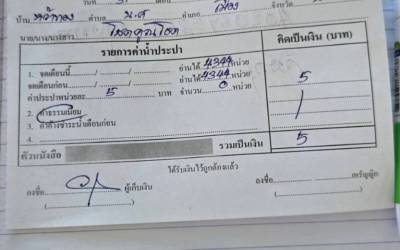 บ้าน ตำบล น.ส อำเภอ เมือง จังหวัด
นาย/นาง/นางสาว
รายการค่าน้ำประปา คิดเป็นเงิน (บาท)
1. จดเดือนนี้ ...../...../..... อ่านได้ 4344 หน่วย
จดเดือนก่อน ...../...../..... อ่านได้ 4344 หน่วย
ค่าประปาหน่วยละ 5 บาท จำนวน 0 หน่วย 5
2. ค่าธรรมเนียม
3. ค่าค้างชำระน้ำเดือนก่อน
4.
ตัวหนังสือ รวมเป็นเงิน 5
ได้รับเงินไว้ถูกต้องแล้ว
ลงชื่อ ผู้เก็บเงิน ลงชื่อ เหรัญญิก